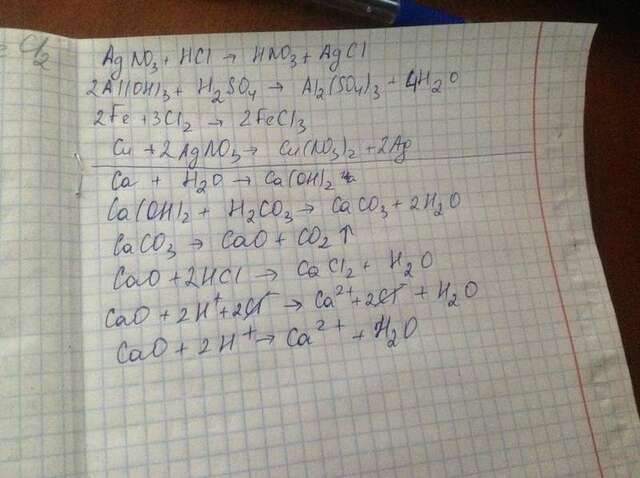 Cl₂
AgNO₃ + HCl → HNO₃ + AgCl
2Al(OH)₃ + H₂SO₄ → Al₂(SO₄)₃ + 4H₂O
2Fe + 3Cl₂ → 2FeCl₃
Cu + 2AgNO₃ → Cu(NO₃)₂ + 2Ag
Ca + H₂O → Ca(OH)₂
Ca(OH)₂ + H₂CO₃ → CaCO₃ + 2H₂O
CaCO₃ → CaO + CO₂↑
CaO + 2HCl → CaCl₂ + H₂O
CaO + 2H⁺ + 2Cl⁻ → Ca²⁺ + 2Cl⁻ + H₂O
CaO + 2H⁺ → Ca²⁺ + H₂O